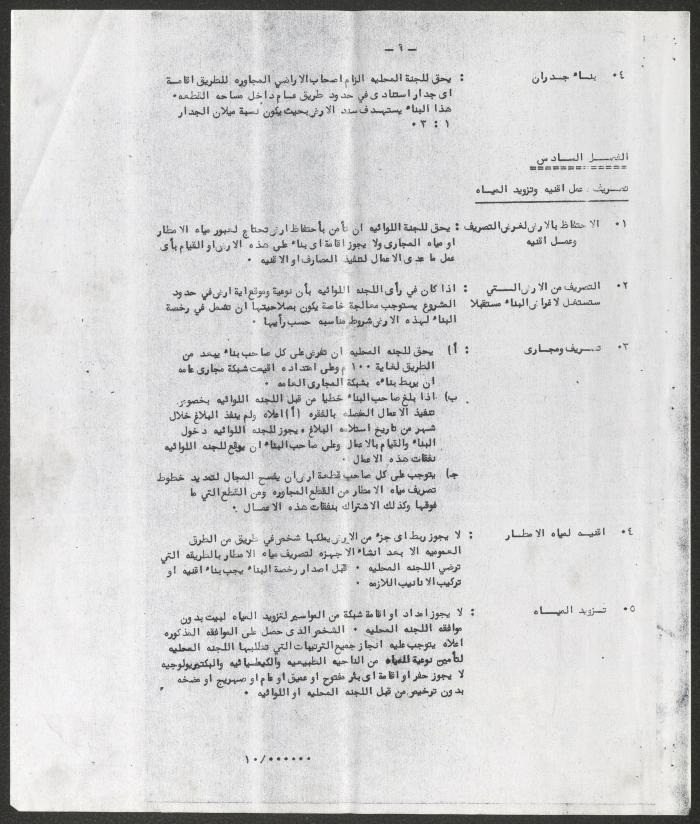 - ٩ -
٤٠ بناء جدران : يحق للجنة المحليه الزام اصحاب الاراضي المجاوره للطريق اقامة
اى جدار استنادى في حدود طريق عام داخل مساحه القطعه٠
هذا البناء يستهدف سند الارض بحيث يكون نسبة ميلان الجدار
١ : ٣ ٠
الفصل السادس
تصريف، عمل اقنيه وتزويد المياه
١٠ الاحتفاظ بالارض لغرض التصريف : يحق للجنة اللوائيه ان تأمن بأحتفاظ ارض تحتاج لعبور مياه الامطار
وعمل اقنيه او مياه المجارى ولا يجوز اقامة اى بناء على هذه الارض او القيام بأى
عمل ما عدى الاعمال لتنفيذ المصارف او الاقنيه ٠
٢٠ التصريف من الارض الستي : اذا كان في رأى اللجنه اللوائيه بأن نوعية وموقع اية ارض في حدود
ستستغل لاغراض البناء مستقبلا المشروع يستوجب معالجة خاصة يكون بصلاحيتها ان تشمل في رخصة
البناء لهذه الارض شروط مناسبه حسب رأيها ٠
٣٠ تصريف ومجارى : أ) يحق للجنه المحليه ان تفرض على كل صاحب بناء يبعد من
الطريق لغاية ١٠٠ م وعلى امتداده اقيمت شبكة مجارى عامه
ان يربط بناءه بشبكة المجارى العامه ٠
ب) اذا بلغ صاحب البناء خطيا من قبل اللجنه اللوائيه بخصوص
تنفيذ الاعمال المفصله بالفقره (أ) اعلاه ولم ينفذ البلاغ خلال
شهر من تاريخ استلامه البلاغ ٠ يجوز للجنه اللوائيه دخول
البناء والقيام بالاعمال وعلى صاحب البناء ان يوقع للجنه اللوائيه
نفقات هذه الاعمال ٠
ج) يتوجب على كل صاحب قطعة ارض ان يفسح المجال لتمديد خطوط
تصريف مياه الامطار من القطع المجاوره ومن القطع التي ما
فوقها وكذلك الاشتراك بنفقات هذه الاعمال ٠
٤٠ اقنيه لمياه الامطار : لا يجوز ربط اى جزء من الارض يملكها شخص في طريق من الطرق
العموميه الا بعد انشاء الاجهزه لتصريف مياه الامطار بالطريقه التي
ترضي اللجنه المحليه ٠ قبل اصدار رخصة البناء يجب بناء اقنيه او
تركيب الانابيب اللازمه ٠
٥٠ تزويد المياه : لا يجوز امداد او اقامة شبكة من المواسير لتزويد المياه لبيت بدون
موافقه اللجنه المحليه ٠ الشخص الذى حصل على الموافقه المذكوره
اعلاه يتوجب عليه انجاز جميع الترتيبات التي تطلبها اللجنه المحليه
لتأمين نوعية المياه من الناحيه الطبيعيه والكيميائيه والبكتيريولوجيه
لا يجوز حفر او اقامة اى بئر مفتوح او عميق او عام او صهريج او مضخه
بدون ترخيص من قبل اللجنه المحليه او اللوائيه ٠
١٠/٠٠٠٠٠٠